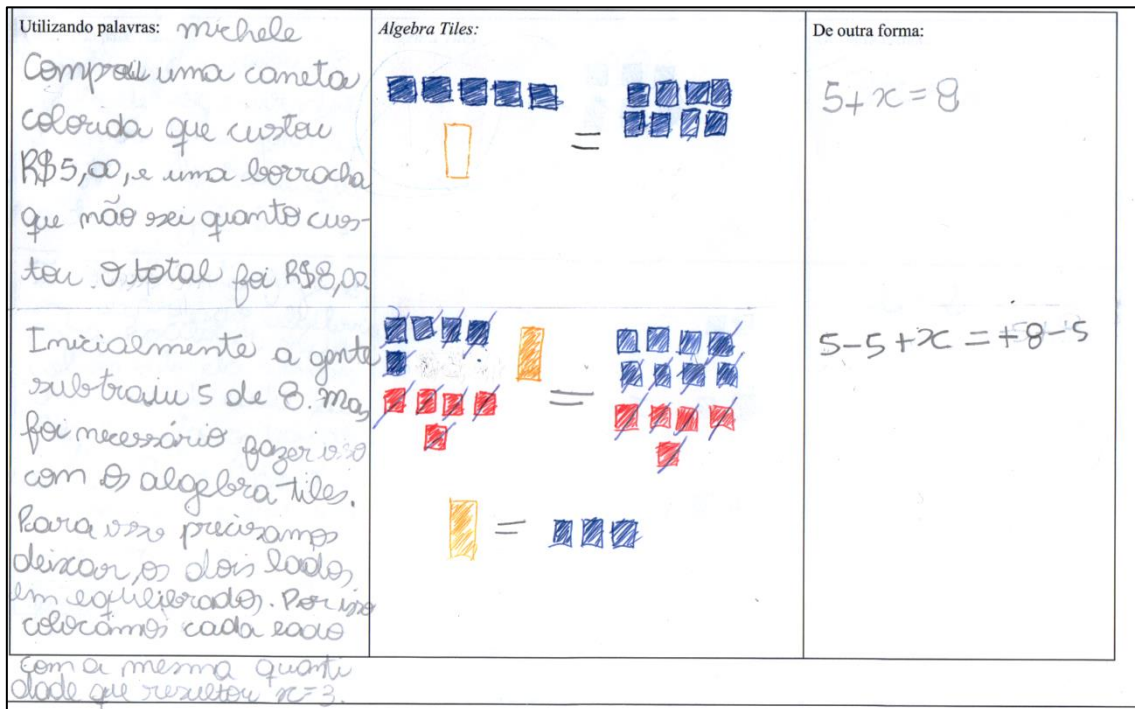 Utilizando palavras: michele
Comprou uma caneta
colorida que custou
R$5,00, e uma borracha
que não sei quanto cus-
tou. O total foi R$8,00
Algebra Tiles:
=
De outra forma:
5+x=8
Inicialmente a gente
subtraiu 5 de 8. Mas
foi necessário fazer isso
com os algebra tiles.
Para isso precisamos
deixar, os dois lados,
em equilibrados. Por isso
colocamos cada lado
com a mesma quanti
dade que resultou x=3.
=
=
5-5+x=+8-5